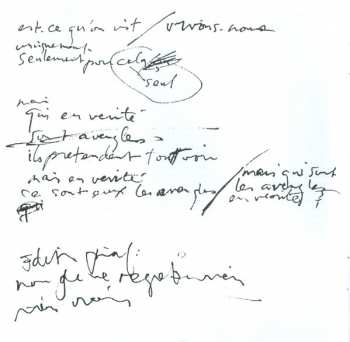 est-ce qu'on vit / vivons-nous
uniquement
seulement pour cela
seul
mais
qui en verité
sont aveugles
ils prétendent tout voir
mais en verité
ce sont eux les aveugles / mais qui sont
les aveugles
en verité ?
Edith Piaf:
non je ne regrette rien